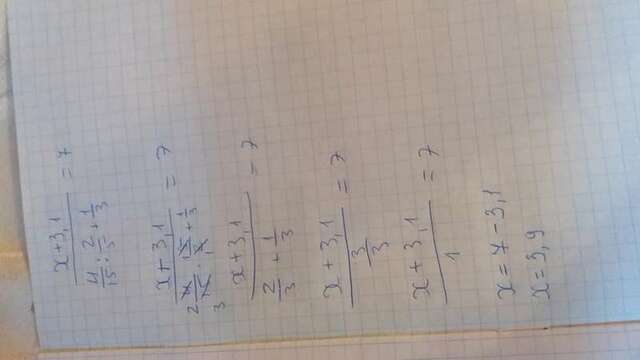 x+3,1 / (4/15 : 2/5 + 1/3) = 7
x+3,1 / (4/15 · 5/2 + 1/3) = 7
x+3,1 / (2/3 + 1/3) = 7
x+3,1 / (3/3) = 7
x+3,1 / 1 = 7
x=7-3,1
x=3,9